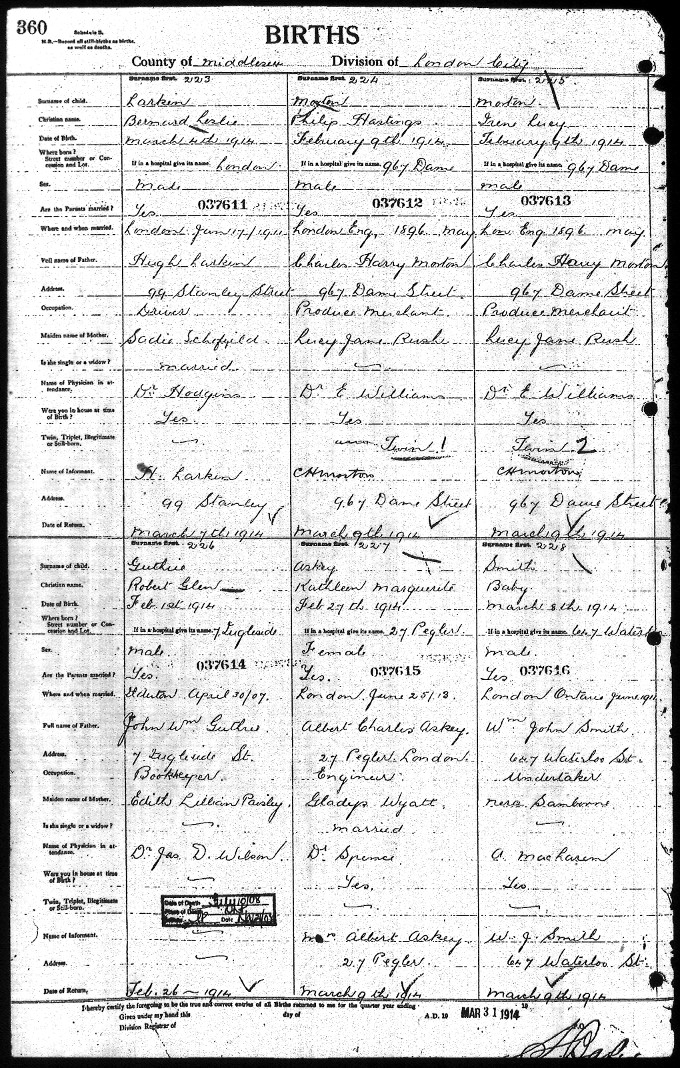 360
Schedule B.
N.B.—Record all still-births as births, as well as deaths.
BIRTHS
County of Middlesex Division of London City
Surname first. 223 Surname first. 224 Surname first. 225
Surname of child. Larkin Morton Morton
Christian name. Bernard Leslie Philip Hastings Irene Lucy
Date of Birth. March 4th 1914 February 9th 1914 February 9th 1914
Where born? Street number or Concession and Lot. If in a hospital give its name. London If in a hospital give its name. 967 Dame If in a hospital give its name. 967 Dame
Sex. Male male male
037611 037612 037613
Are the Parents married? Yes Yes Yes
Where and when married. London Jun 17/1911 London Eng, 1896 May Lon Eng 1896 May
Full name of Father. Hugh Larkin Charles Harry Morton Charles Harry Morton
Address. 99 Stanley Street 967 Dame Street 967 Dame Street
Occupation. Driver Produce Merchant Produce Merchant
Maiden name of Mother. Sadie Schofield Lucy Jane Rush Lucy Jane Rush
Is she single or a widow? married
Name of Physician in attendance. Dr Hodgins Dr E Williams Dr E Williams
Were you in house at time of Birth? Yes Yes Yes
Twin, Triplet, Illegitimate or Still-born. Twin 1 Twin 2
Name of Informant. H. Larkin CHMorton CHMorton
Address. 99 Stanley 967 Dame Street 967 Dame Street
Date of Return. March 7th 1914 March 9th 1914 March 9th 1914
Surname first. 226 Surname first. 227 Surname first. 228
Surname of child. Guthrie Askey Smith
Christian name. Robert Glen Kathleen Marguerite Baby
Date of Birth. Feb 1st 1914 Feb 27th 1914 March 8th 1914
Where born? Street number or Concession and Lot. If in a hospital give its name. 7 Ingleside If in a hospital give its name. 27 Pegler If in a hospital give its name. 647 Waterloo
Sex. male Female male
037614 037615 037616
Are the Parents married? Yes. Yes. Yes
Where and when married. Ilderton April 30/07. London June 25/13. London Ontario June
Full name of Father. John Wm Guthrie Albert Charles Askey. Wm John Smith
Address. 7 Ingleside St. 27 Pegler London. 647 Waterloo St.
Occupation. Bookkeeper Engineer Undertaker
Maiden name of Mother. Edith Lillian Paisley. Gladys Wyatt Sambourne
Is she single or a widow? married
Name of Physician in attendance. Dr Jas. D. Wilson Dr Spence A. MacLaren
Were you in house at time of Birth? Yes, Yes.
Twin, Triplet, Illegitimate or Still-born.
Date of Death
Place of Death
Date
Name of Informant. Albert Askey W. J. Smith
Address. 27 Pegler 647 Waterloo St.
Date of Return. Feb. 26 - 1914 March 9th 1914 March 9th 1914
I hereby certify the foregoing to be the true and correct entries of all Births returned to me for the quarter year ending 19
Given under my hand this day of A.D. 19 MAR 31 1914
Division Registrar of